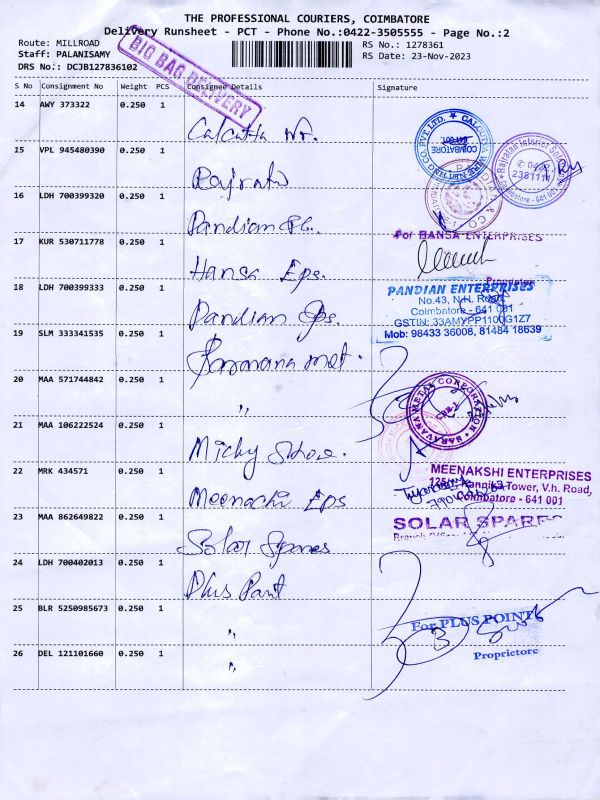 THE PROFESSIONAL COURIERS, COIMBATORE
Delivery Runsheet - PCT - Phone No.:0422-3505555 - Page No.:2
Route: MILLROAD
Staff: PALANISAMY
DRS No.: DCJB127836102
RS No.: 1278361
RS Date: 23-Nov-2023
BIG BAG DELIVERY
S No Consignment No Weight PCS Consignee Details Signature
14 AWY 373322 0.250 1
Calcutta Wr.
15 VPL 945480390 0.250 1
16 LDH 700399320 0.250 1
Pandian
17 KUR 530711778 0.250 1
Hansa Eps.
18 LDH 700399333 0.250 1
Pandian Eps.
19 SLM 333341535 0.250 1
Saravana met.
20 MAA 571744842 0.250 1
"
21 MAA 106222524 0.250 1
Micky Store.
22 MRK 434571 0.250 1
Meenachi Eps
23 MAA 862649822 0.250 1
Solar Spares
24 LDH 700402013 0.250 1
Plus Pant
25 BLR 5250985673 0.250 1
"
26 DEL 121101660 0.250 1
"
CALCUTTA WIRE NETTING CO. PVT. LTD.
COIMBATORE
641 001
Rajratan
2381111
641 001
For HANSA ENTERPRISES
Proprietor
PANDIAN ENTERPRISES
No.43, N.H. Road,
Coimbatore - 641 001
GSTIN: 33AMYPP1100G1Z7
Mob: 98433 36008, 81484 18639
SARAVANA METAL CORPORATION
CBE-1
MEENAKSHI ENTERPRISES
Kannika Tower, V.h. Road,
Coimbatore - 641 001
SOLAR SPARES
For PLUS POINT
Proprietore